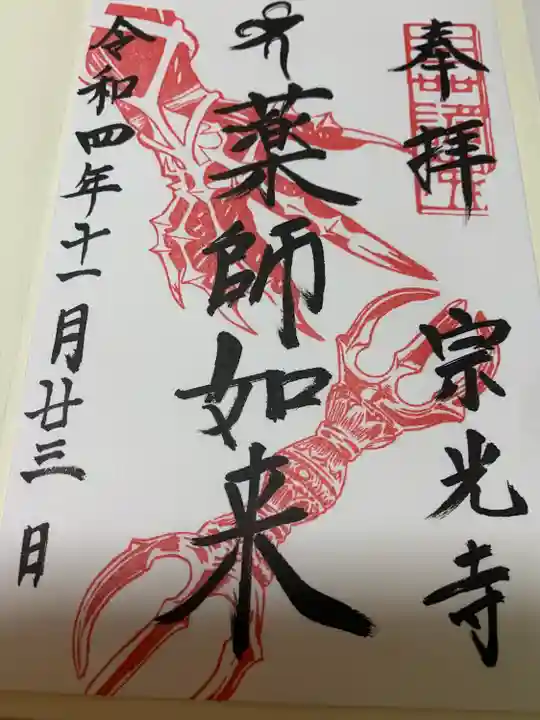 奉拝
宗光寺
薬師如来
令和四年十一月廿三日